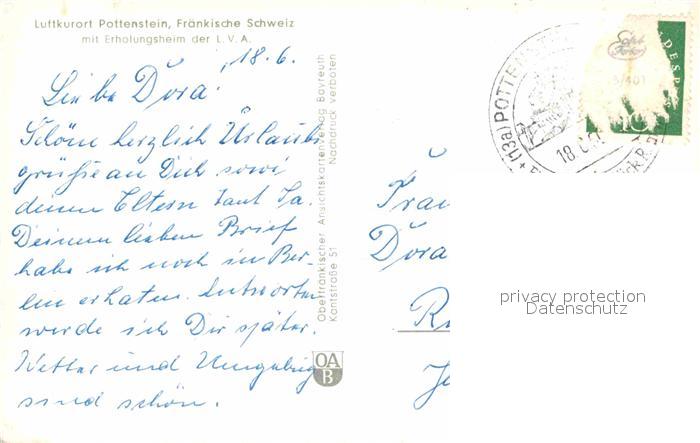 Luftkurort Pottenstein, Fränkische Schweiz
mit Erholungsheim der L. V. A.
18. 6.
Liebe Dora.
Schöne herzlich Urlaubs
grüße an Dich sowi
deinen Eltern
Deinen lieben Brief
habe ich noch in Ber-
lin erhaten. Antworten
werde ich Dir später.
Wetter und Umgebung
sind schön.
Oberfränkischer Ansichtskartenverlag Bayreuth
Kantstraße 51 Nachdruck verboten
OA
B
(13a) POTTEN
18.
Frau
Dora
privacy protection
Datenschutz